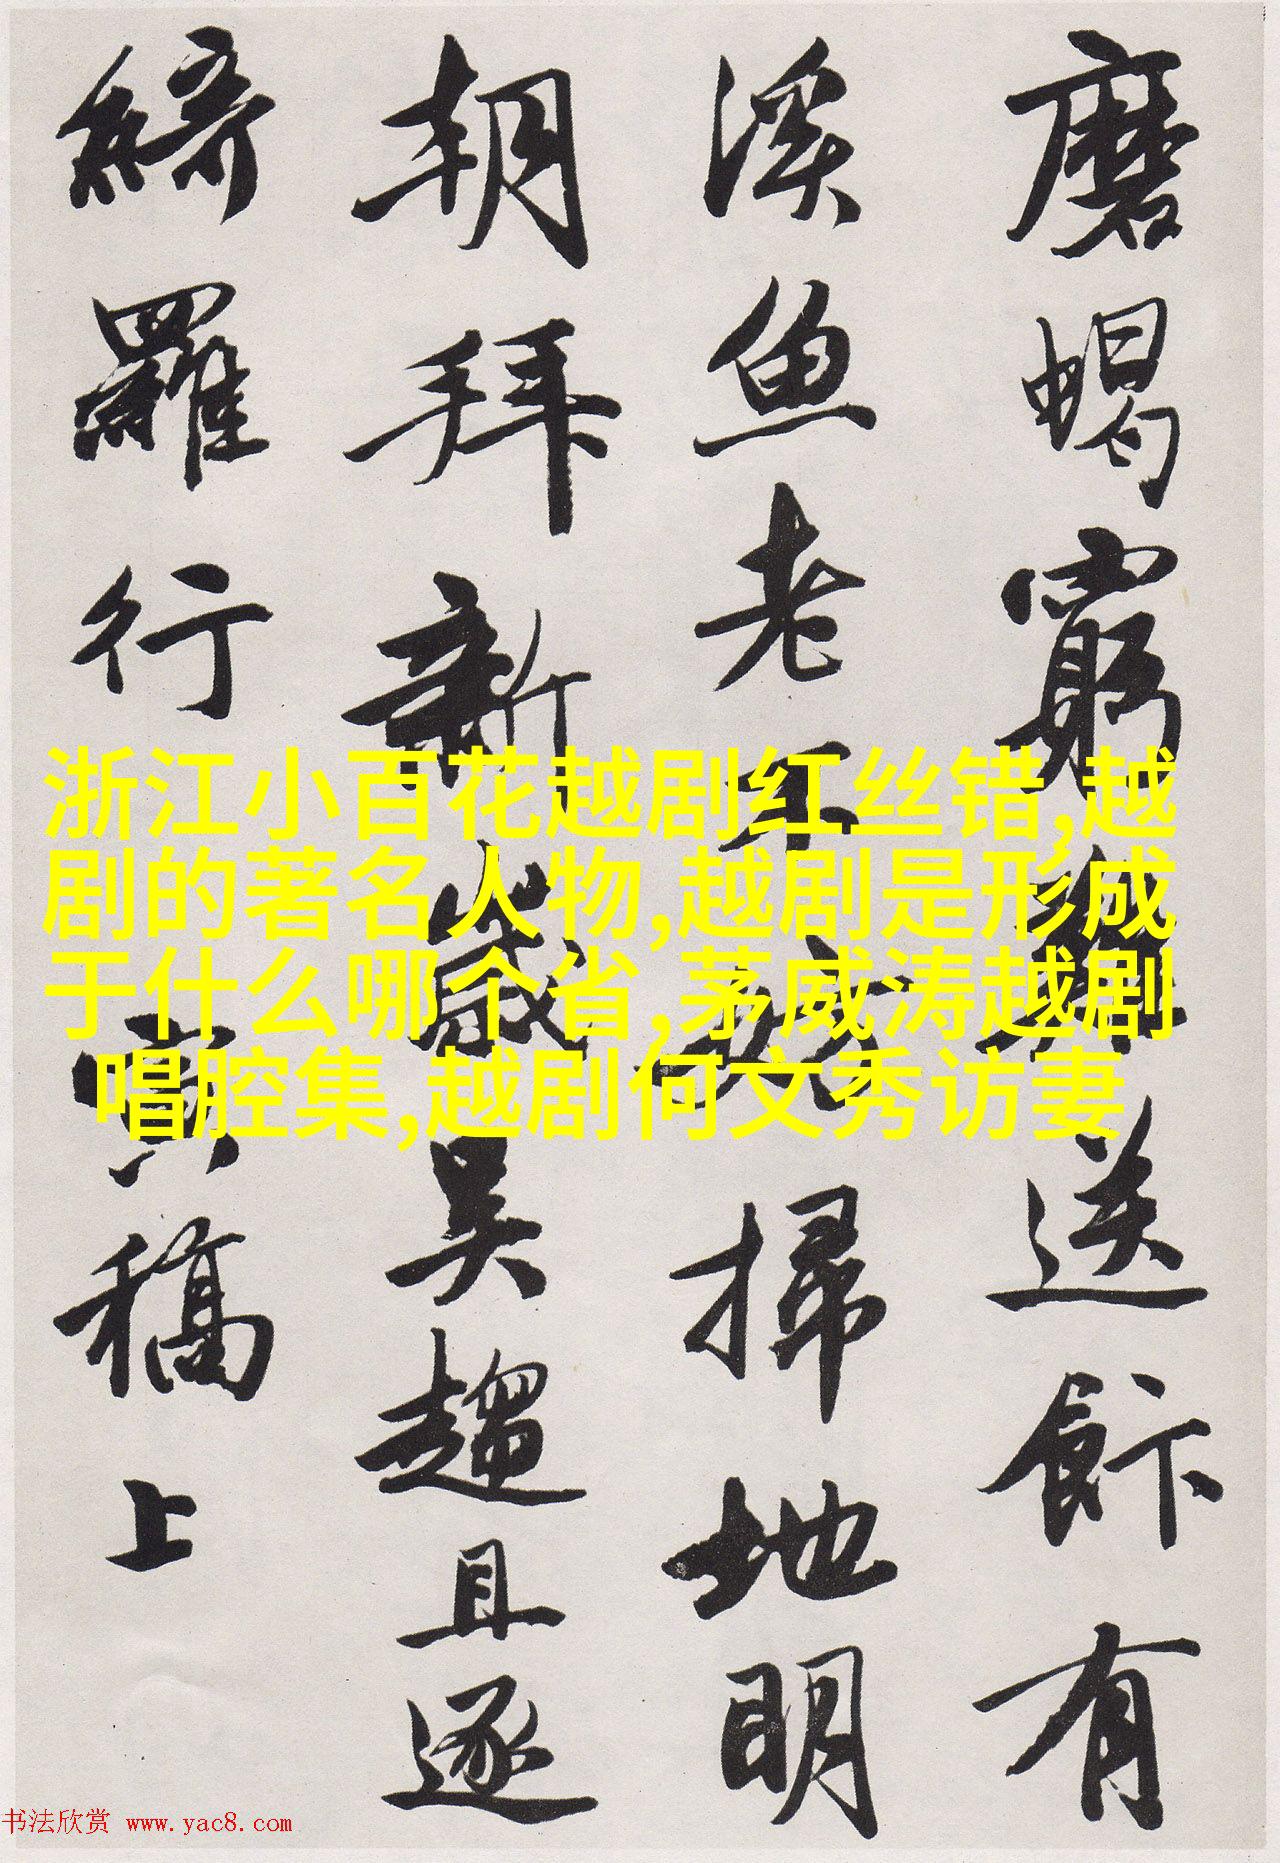 磨蝎窮送飰有
溪鱼老不掃地明
朝拜新歲吳趨且逐
綺羅行寅稿上
浙江小百花越剧红丝错,越
剧的著名人物,越剧是形成
于什么哪个省,茅威涛越剧
唱腔集,越剧何文秀访妻
书法欣赏 www.yac8.com